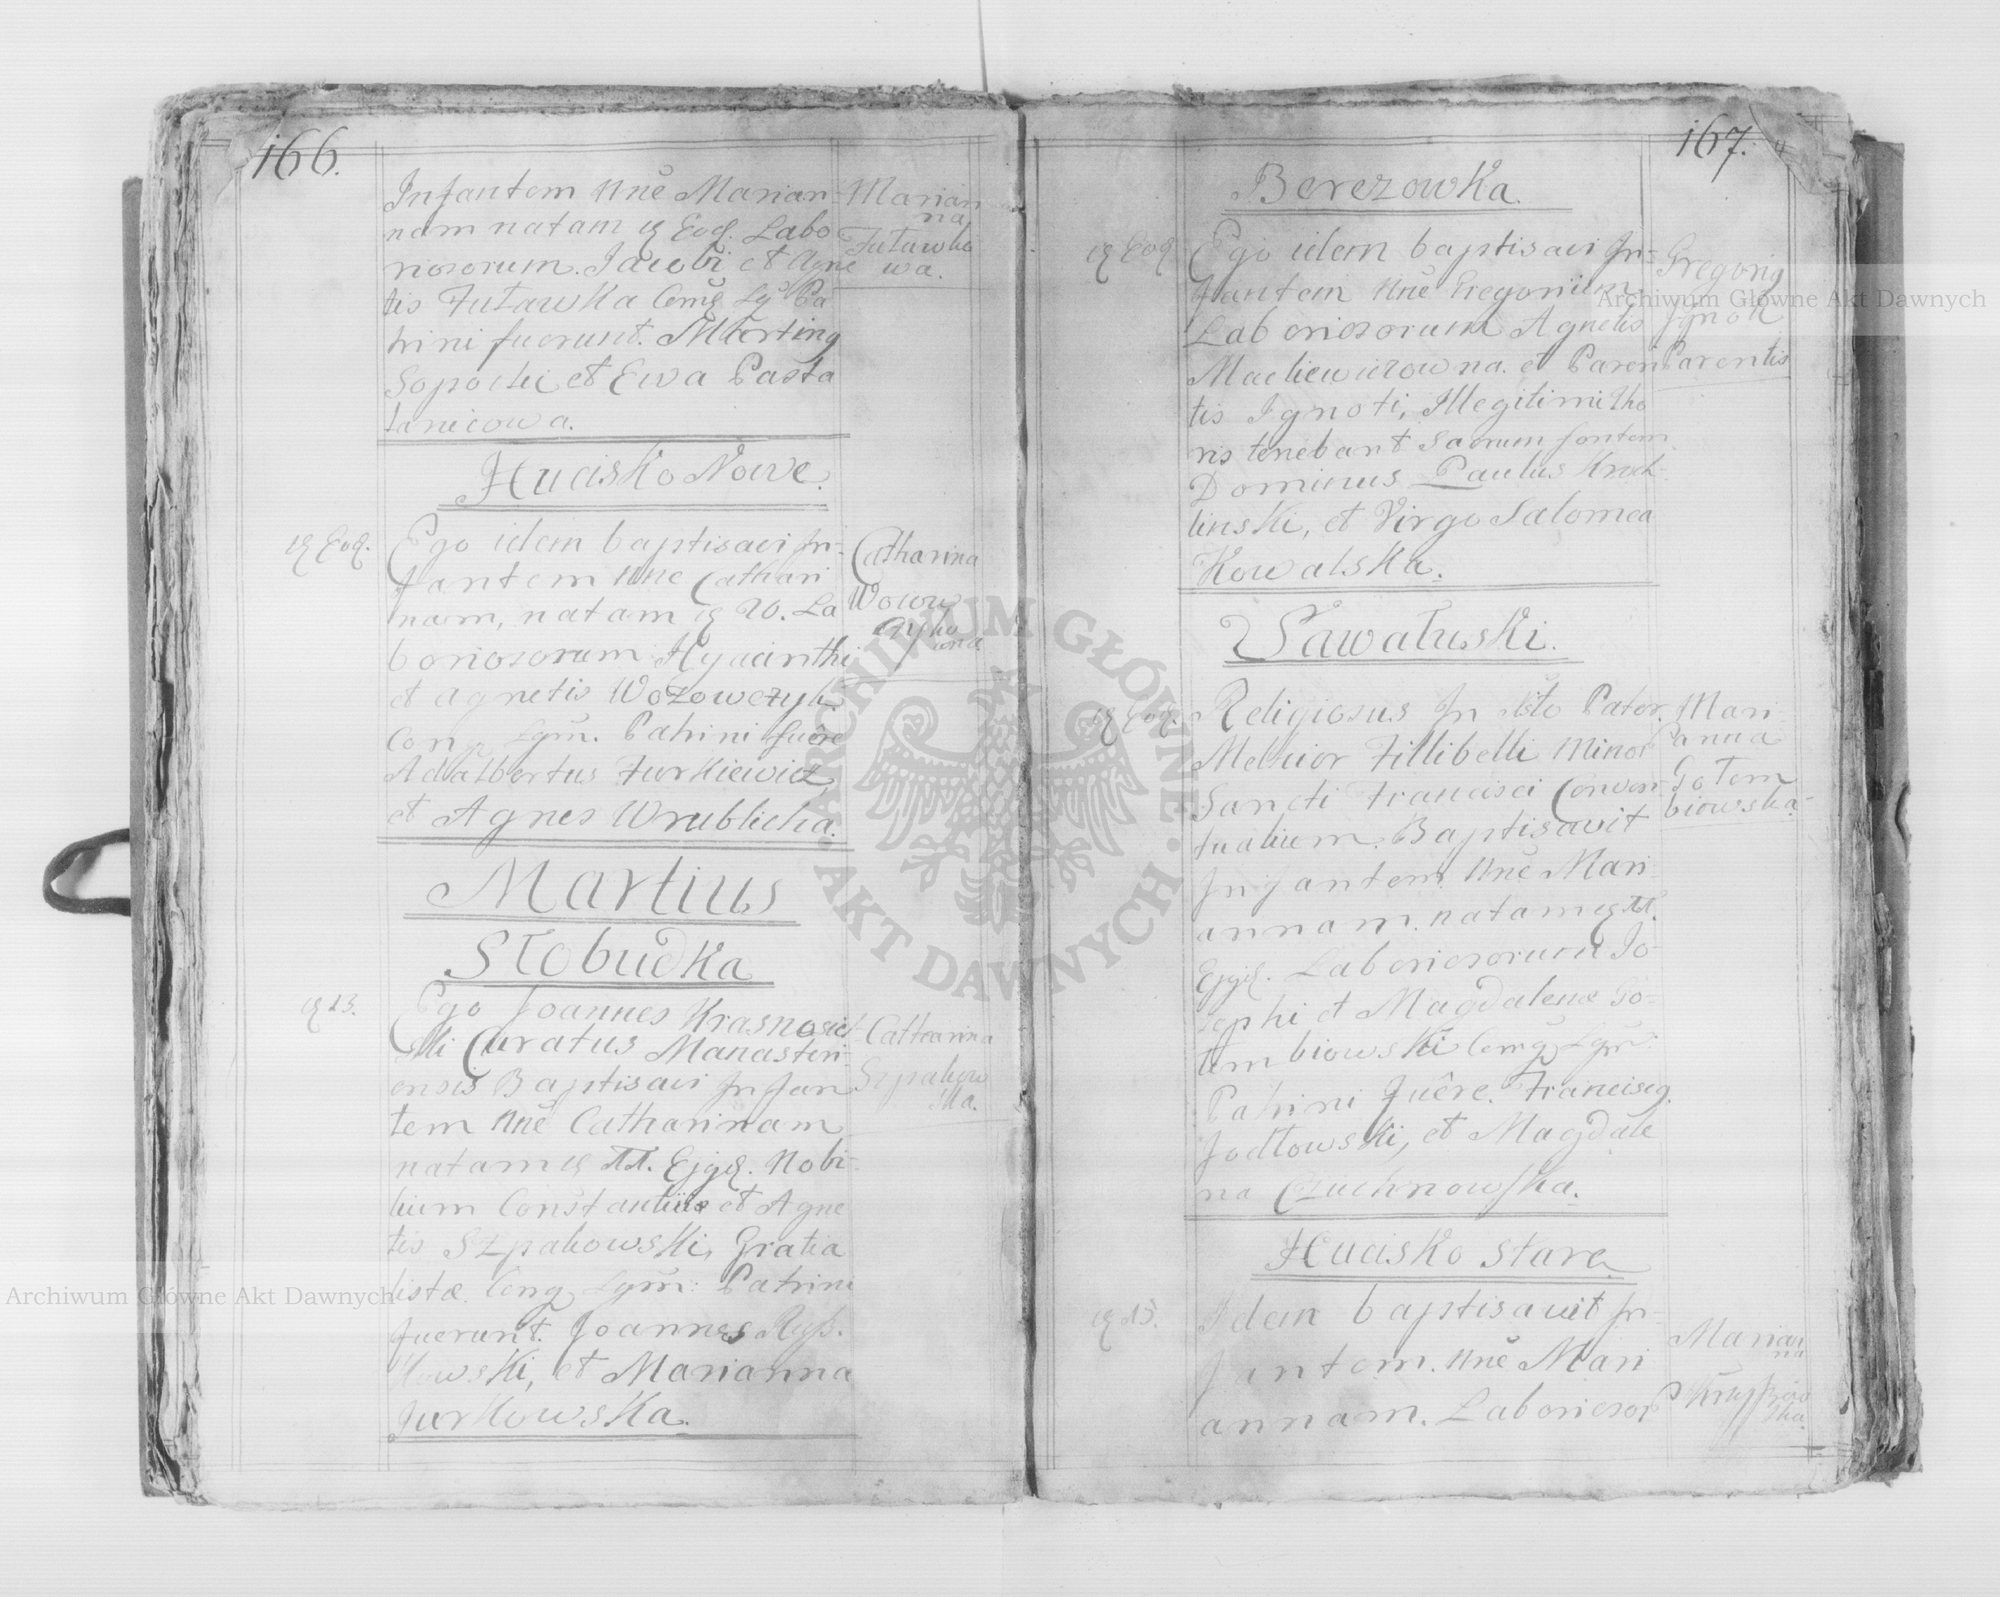 166.
Infantem nñe Marian-
nam natam ... Eod. Labo
riosorum. Jacobi et Agne
tis Futawka Comg Lg Pa
trini fuerunt. Marting
Sopocki et Eva Pasta
lanicowa.
Marian
na
Futawko
wa.
Hucisko Nowe.
... Eod.
Ego idem baptisavi In-
fantem nñe Cathari
nam, natam ... 20. La
boriosorum Hyacinthi
et Agnetis Wozowczyk.
Cong Lgm. Patrini fuêre
Adalbertus Jurkiewicz
et Agnes Wrublicha.
Catharina
Wozow
czyko
wna
Martius
Słobudka
... 13.
Ego Joannes Krasnosiel-
ski Curatus Manasteri-
ensis Baptisavi Infan
tem nñe Catharinam
natam ... Ejgd. Nobi-
lium Constantini et Agne
tis Szpakowski, Gratia
listæ. Cong Lgm: Patrini
fuerunt. Joannes Ryß.
kowski, et Marianna
Jurkowska.
Catharina
Szpakow
ska.
167.
Berezowka.
... Eod
Ego idem baptisavi In-
fantem nñe Gregorium
Laboriosorum Agnetis
Mackiewiczowna. et Paren
tis Ignoti, Illegitimi tho
ris tenebant Sacrum fontem
Dominus Paulus Kroch-
linski, et Virgo Salomea
Kowalska.
Gregorig
Ignoti
Parentis
Sawałuski.
... Eod.
Religiosus In Xsto Pater
Melchior Fillibelli Minor
Sancti Francisci Conven-
tualium. Baptisavit
Infantem nñe Mari-
annam. natam ...
Ejgd. Laboriosorum Jo-
sephi et Magdalenæ Go-
łembiowski Comg Lgm:
Patrini fuêre. Franciscg.
Jodłowski, et Magdale
na Czuchnowska.
Mari-
anna
Gołem
biowska.
Hucisko stare
... 15.
Idem baptisavit In-
fantem. nñe Mari
annam. Laborioso
Marian
na